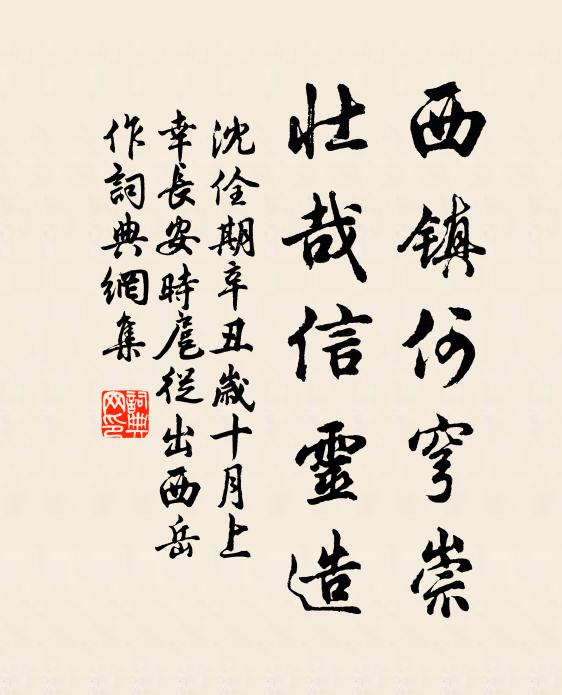 西镇何穹崇
壮哉信靈造
沈佺期辛丑歲十月上
幸長安時扈從出西岳
作詞典網集
詞典
网印